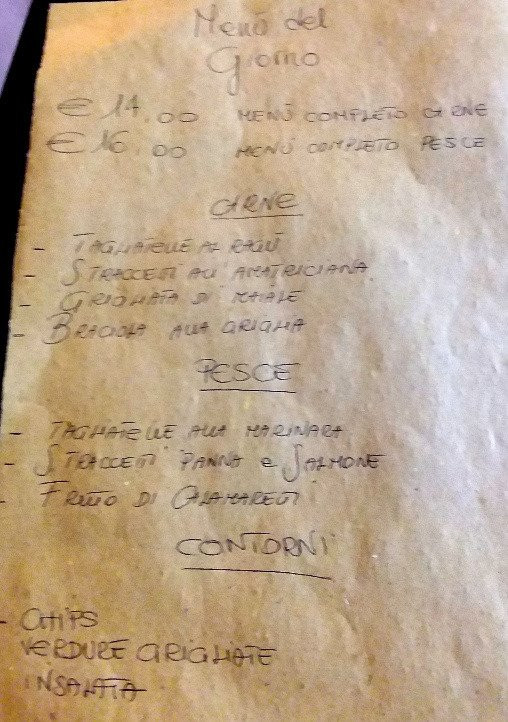 Menù del
Giorno
€ 14.00 MENÙ COMPLETO CARNE
€ 16.00 MENÙ COMPLETO PESCE
CARNE
- TAGLIATELLE AL RAGÙ
- STRACCETTI ALL'AMATRICIANA
- GRIGLIATA DI MAIALE
- BRACIOLA ALLA GRIGLIA
PESCE
- TAGLIATELLE ALLA MARINARA
- STRACCETTI PANNA e SALMONE
- FRITTO DI CALAMARETTI
CONTORNI
- CHIPS
VERDURE GRIGLIATE
INSALATA